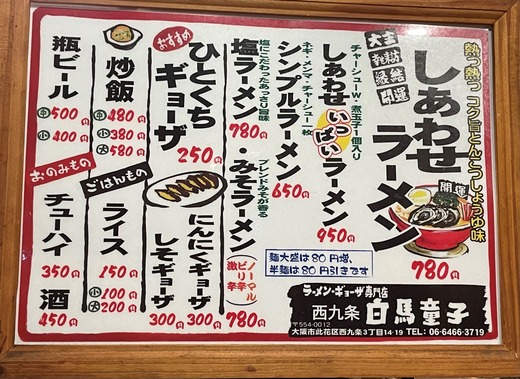 熱っ熱っ コク旨とんこつしょうゆ味
大吉
縁結
開運
しあわせ
ラーメン
開運
780円
チャーシューW 煮玉子1個入り
しあわせいっぱいラーメン
950円
ネギ・メンマ・チャーシュー1枚
シンプルラーメン
650円
塩にこだわったあっさり旨味
塩ラーメン
780円
・
ブレンドみそが香る
みそラーメン
ノーマル
ピリ辛
激辛
780円
麺大盛は80円増、
半麺は80円引きです
おすすめ
ひとくち
ギョーザ
250円
にんにくギョーザ
300円
しそギョーザ
300円
ごはんもの
炒飯
中 480円
小 380円
大 580円
ライス
中 150円
小 100円
大 200円
おのみもの
瓶ビール
中 500円
小 400円
チューハイ
350円
酒
450円
ラーメン・ギョーザ専門店
西九条 白馬童子
〒554-0012
大阪市此花区西九条3丁目14-19 TEL: 06-6466-3719